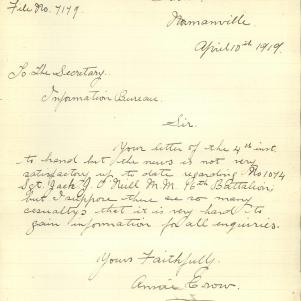 File No. 7179.
Normanville
April 10th 1919.
To The Secretary
Information Bureau.
Sir.
Your letter of the 4th inst
to hand but the news is not very
satisfactory up to date regarding No 1074
Sgt. Jack J. O'Neill M.M. 46th Battalion
but I suppose there are so many
casualtys that it is very hard to
gain information for all enquiries.
Yours Faithfully.
Annie Crow.